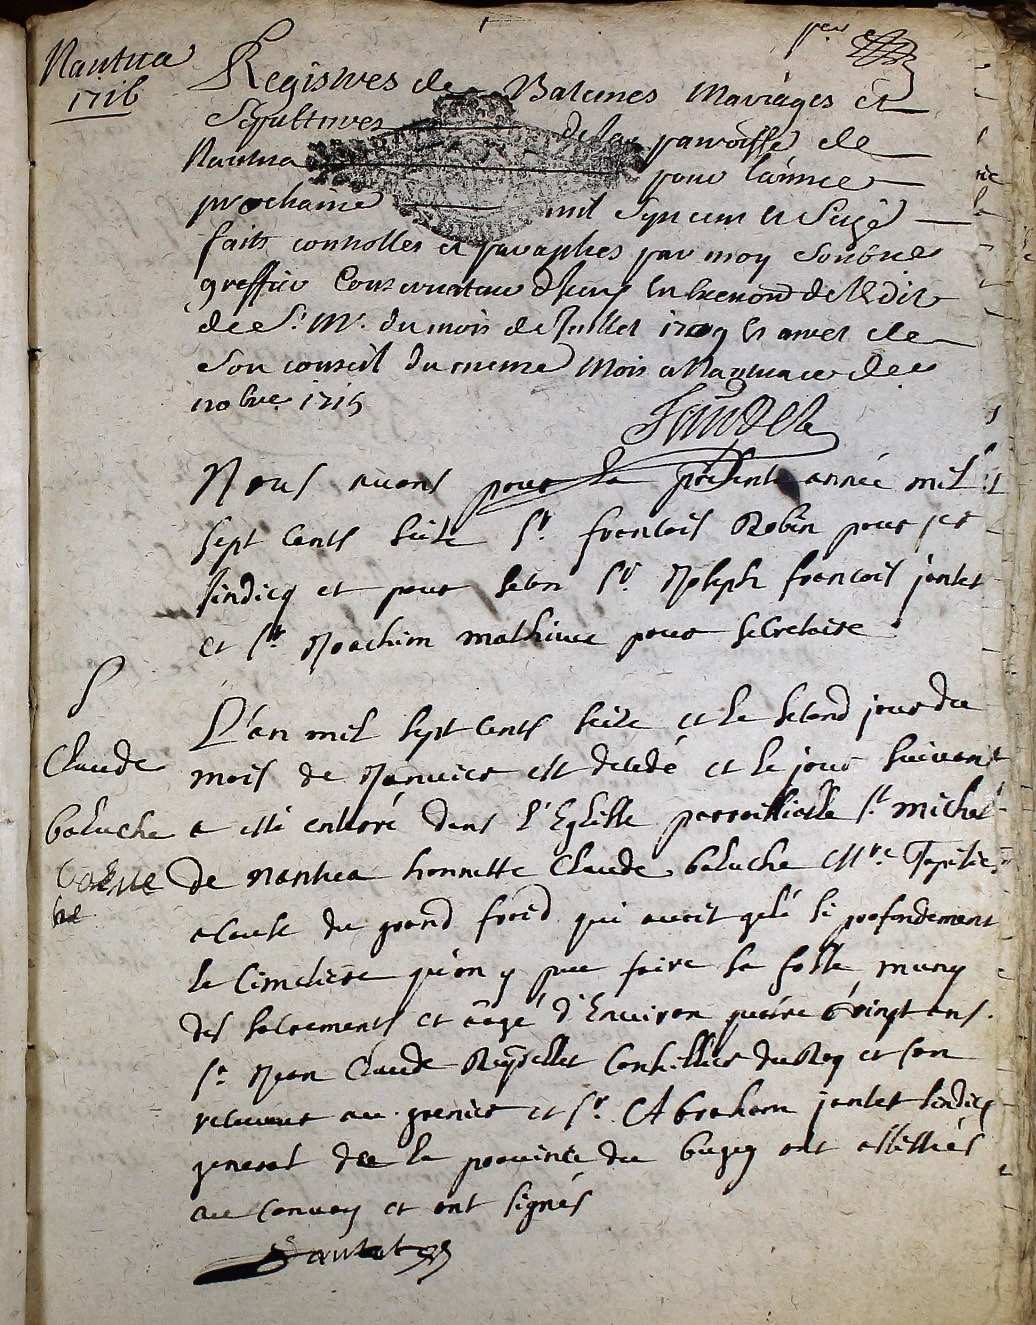 Nantua
1716
Registres de Batemes Mariages et
Sepultures de la parroisse de
Nantua pour l'année
prochaine mil Sept cent et Seize
faits conttollés et paraphes par moy Soubne
greffier Conservateur d'Iceux En Execuon de l'Edit
de S. Mt. du mois de Juillet 1709 Et arret de
Son conseil du meme Mois a Nantua ce
nobre 1715
Nous avons pour la presente année mil
sept cents seize Sr. francois Robin pour
sindicq et pour Sr. Joseph francois jantet
et Sr. Joachim mathieu pour secretaire
S
Claude
baluche
L'an mil sept cents seize et le second jour du
mois de Janvier est decedé et le jour suivant
a esté enterré dans l'Eglisse parroissialle St. michel
de nantua honnette Claude baluche Mre. Tapissier
a cause du grand froid qui avoit gelé si profondement
le Cimetiere qu'on y peu faire la fosse muny
des sacrements et aagé d'Environ quatre vingt ans.
Sr. Jean Claude Reydellet Conseillier du Roy et son
receveur au grenier et Sr. Abraham jantet sindicq
general de la province du bugey ont assistés
au Convoy et ont signés
Jantet